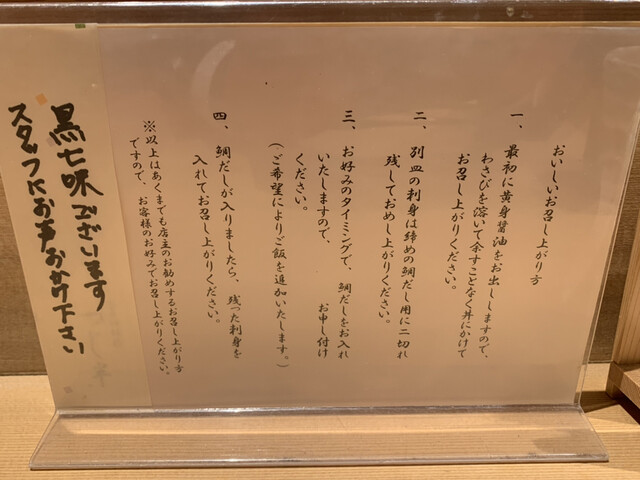 おいしいお召し上がり方
一、最初に黄身醤油をお出ししますので、
わさびを溶いて余すことなく丼にかけて
お召し上がりください。
二、別皿の刺身は締めの鯛だし用に二切れ
残しておめし上がりください。
三、お好みのタイミングで、鯛だしをお入れ
いたしますので、 お申し付け
ください。
(ご希望によりご飯を追加いたします。)
四、鯛だしが入りましたら、残った刺身を
入れてお召し上がりください。
※以上はあくまでも店主のお勧めするお召し上がり方
ですので、お客様のお好みでお召し上がりください。
黒七味ございます
スタッフにお声おかけ下さい